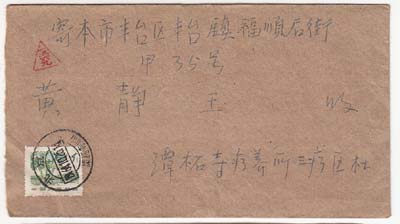 寄本市丰台区丰台镇福顺后街
甲35号
黄静玉 收
潭柘寺疗养所三疗区杜